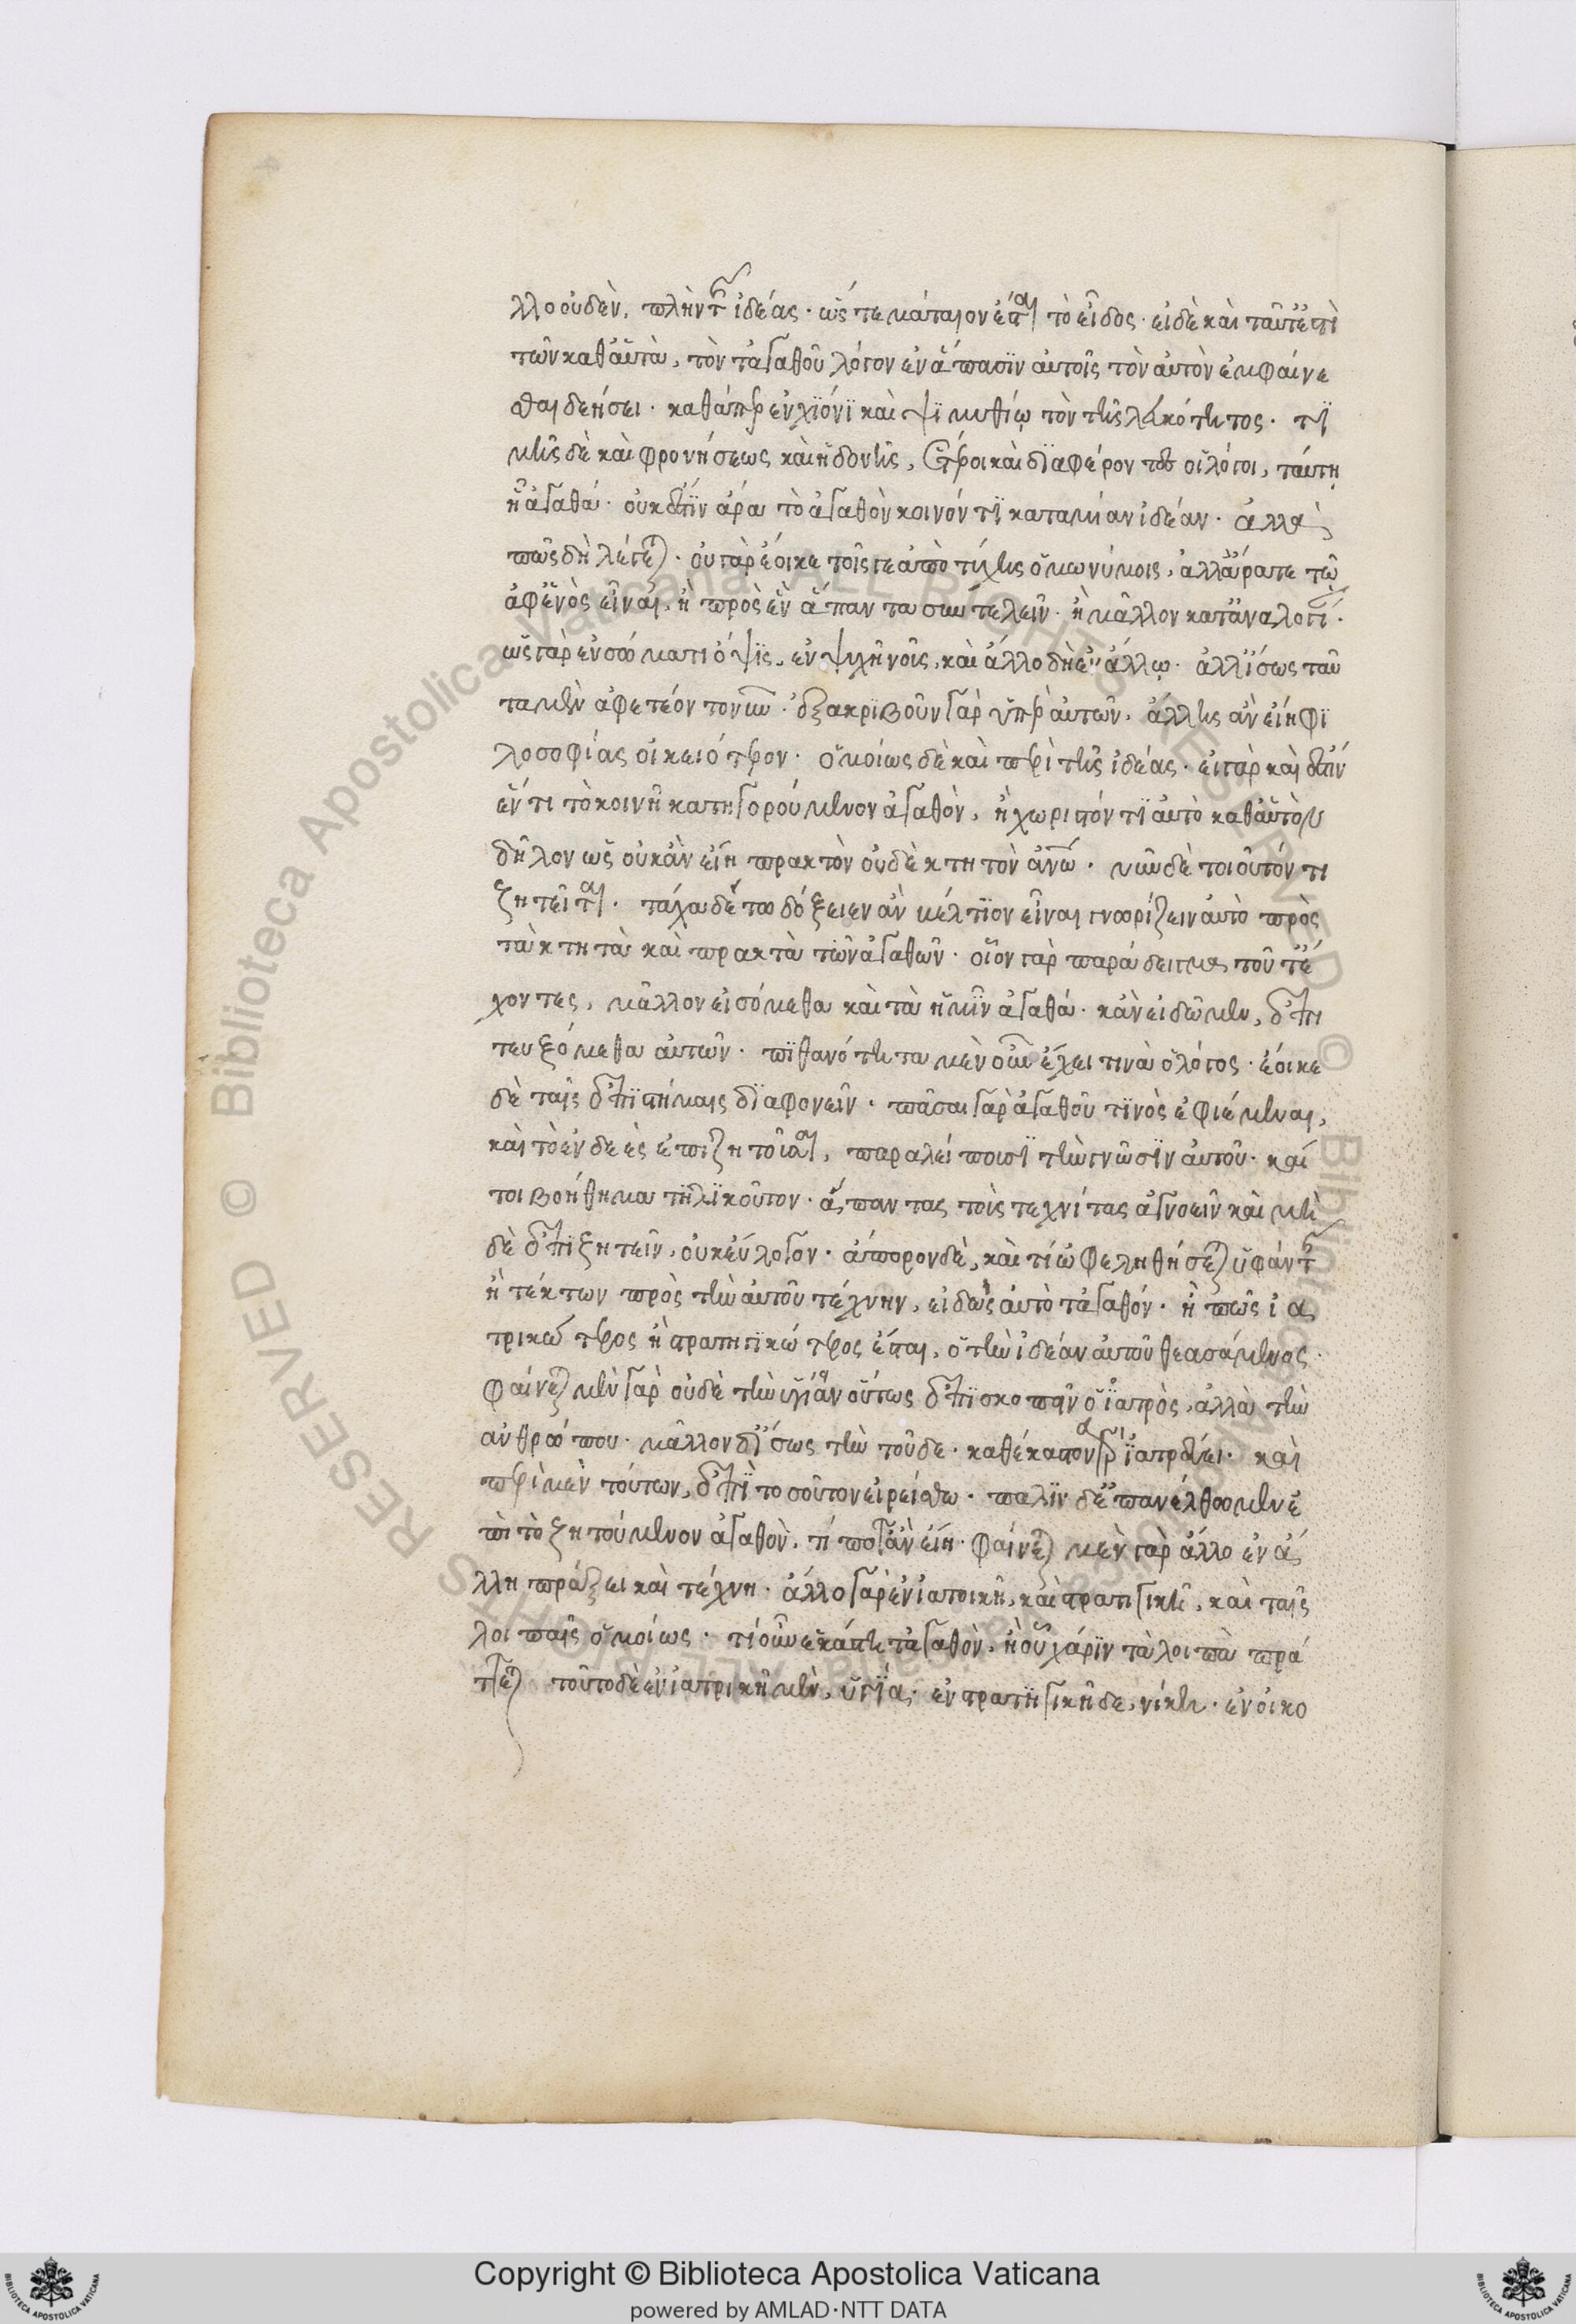 λλο οὐδὲν, πλὴν τῆς ἰδέας· ὥστε μάταιον ἔσται τὸ εἶδος· εἰ δὲ καὶ ταῦτ' ἐστὶ
τῶν καθ' αὑτὰ, τὸν τἀγαθοῦ λόγον ἐν ἅπασιν αὐτοῖς τὸν αὐτὸν ἐμφαίνε
σθαι δεήσει· καθάπερ ἐν χιόνι καὶ ψιμυθίῳ τὸν τῆς λευκότητος· τι
μῆς δὲ καὶ φρονήσεως καὶ ἡδονῆς, ἕτεροι καὶ διαφέροντες οἱ λόγοι, ταύτῃ
ᾗ ἀγαθά· οὐκ ἔστιν ἄρα τὸ ἀγαθὸν κοινόν τι κατὰ μίαν ἰδέαν· ἀλλὰ
πῶς δὴ λέγεται· οὐ γὰρ ἔοικε τοῖς γε ἀπὸ τύχης ὁμωνύμοις, ἀλλ' ἆρά γε τῷ
ἀφ' ἑνὸς εἶναι, ἢ πρὸς ἓν ἅπαντα συντελεῖν· ἢ μᾶλλον κατ' ἀναλογίαν·
ὡς γὰρ ἐν σώματι ὄψις, ἐν ψυχῇ νοῦς, καὶ ἄλλο δὴ ἐν ἄλλῳ· ἀλλ' ἴσως ταῦ
τα μὲν ἀφετέον τονῦν· ἐξακριβοῦν γὰρ ὑπὲρ αὐτῶν, ἄλλης ἂν εἴη φι
λοσοφίας οἰκειότερον· ὁμοίως δὲ καὶ περὶ τῆς ἰδέας· εἰ γὰρ καὶ ἔστιν
ἕν τι τὸ κοινῇ κατηγορούμενον ἀγαθὸν, ἢ χωριστόν τι αὐτὸ καθ' αὑτὸ
δῆλον ὡς οὐκ ἂν εἴη πρακτὸν οὐδὲ κτητὸν ἀνθρώπῳ· νῦν δὲ τοιοῦτόν τι
ζητεῖται· τάχα δέ τῳ δόξειεν ἂν βέλτιον εἶναι γνωρίζειν αὐτὸ πρὸς
τὰ κτητὰ καὶ πρακτὰ τῶν ἀγαθῶν· οἷον γὰρ παράδειγμα τοῦτ' ἔ
χοντες, μᾶλλον εἰσόμεθα καὶ τὰ ἡμῖν ἀγαθά· κἂν εἰδῶμεν, ἐπι
τευξόμεθα αὐτῶν· πιθανότητα μὲν οὖν ἔχει τινὰ ὁ λόγος· ἔοικε
δὲ ταῖς ἐπιστήμαις διαφονεῖν· πᾶσαι γὰρ ἀγαθοῦ τινὸς ἐφιέμεναι,
καὶ τὸ ἐνδεὲς ἐπιζητοῦσαι, παραλείποισι τὴν γνῶσιν αὐτοῦ· καί
τοι βοήθημα τηλικοῦτον· ἅπαντας τοὺς τεχνίτας ἀγνοεῖν καὶ μη
δὲ ἐπιζητεῖν, οὐκ εὔλογον· ἄπορον δὲ, καὶ τί ὠφεληθήσεται ὑφάντης
ἢ τέκτων πρὸς τὴν αὑτοῦ τέχνην, εἰδὼς αὐτὸ τἀγαθόν· ἢ πῶς ἰα
τρικώτερος ἢ στρατηγικώτερος ἔσται, ὁ τὴν ἰδέαν αὐτοῦ θεασάμενος·
φαίνεται μὲν γὰρ οὐδὲ τὴν ὑγίειαν οὕτως ἐπισκοπεῖν ὁ ἰατρὸς, ἀλλὰ τὴν
ἀνθρώπου· μᾶλλον δ' ἴσως τὴν τοῦδε· καθέκαστον γὰρ ἰατρεύει· καὶ
περὶ μὲν τούτων, ἐπὶ τοσοῦτον εἰρείσθω· πάλιν δ' ἐπανέλθωμεν ἐ
πὶ τὸ ζητούμενον ἀγαθὸν, τί ποτ' ἂν εἴη· φαίνεται μὲν γὰρ ἄλλο ἐν ἄ
λλη πράξει καὶ τέχνη· ἄλλο γὰρ ἐν ἰατρικῆ, καὶ στρατηγικῆ, καὶ ταῖς
λοιπαῖς ὁμοίως· τί οὖν ἑκάστη τἀγαθὸν, ἢ οὗ χάριν τὰ λοιπὰ πρά
ττεται τοῦτο δὲ ἐν ἰατρικῆ μὲν, ὑγεία· ἐν στρατηγικῆ δε, νίκη· ἐν οἰκο